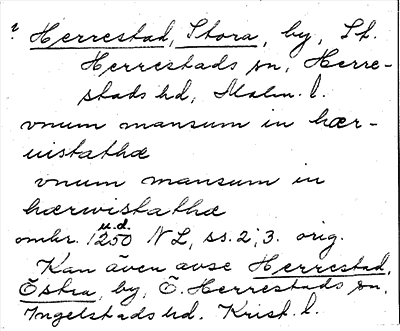 ? Herrestad, Stora, by, St.
Herrestads sn, Herre-
stads hd, Malm. l.
vnum mansum in hær-
uistathæ
vnum mansum in
hærwistathæ
omkr. 1250 u.d. NL, ss. 2, 3. orig.
Kan även avse Herrestad,
Östra, by, Ö. Herrestads sn,
Ingelstads hd. Krist. l.